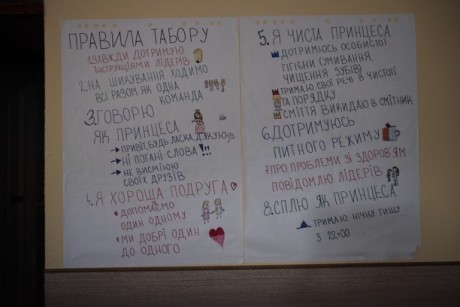 ПРАВИЛА ТАБОРУ
1. ЗАВЖДИ ДОТРИМУЮ
ІНСТРУКЦІЯМИ ЛІДЕРІВ
2. НА ШИКУВАННЯ ХОДИМО
ВСІ РАЗОМ ЯК ОДНА
КОМАНДА
3. ГОВОРЮ
ЯК ПРИНЦЕСА
ПРИВІТ, БУДЬ ЛАСКА, ДЯКУЮ
НІ ПОГАНІ СЛОВА!!!
НЕ ВИСМІЮЮ
СВОЇХ ДРУЗІВ
4. Я ХОРОША ПОДРУГА
ДОПОМАГАЄМО
ОДИН ОДНОМУ
МИ ДОБРІ ОДИН
ДО ОДНОГО
5. Я ЧИСТА ПРИНЦЕСА
ДОТРИМУЮСЬ ОСОБИСТОЇ
ГІГІЄНИ (УМИВАННЯ,
ЧИЩЕННЯ ЗУБІВ)
ТРИМАЮ СВОЇ РЕЧІ В ЧИСТОТІ
ТА ПОРЯДКУ
СМІТТЯ ВИКИДАЮ В СМІТНИК
6. ДОТРИМУЮСЬ
ПИТНОГО РЕЖИМУ
7. ПРО ПРОБЛЕМИ ЗІ ЗДОРОВ'ЯМ
ПОВІДОМЛЮ ЛІДЕРІВ
8. СПЛЮ ЯК ПРИНЦЕСА
ТРИМАЮ НІЧНУ ТИШУ
З 22:00